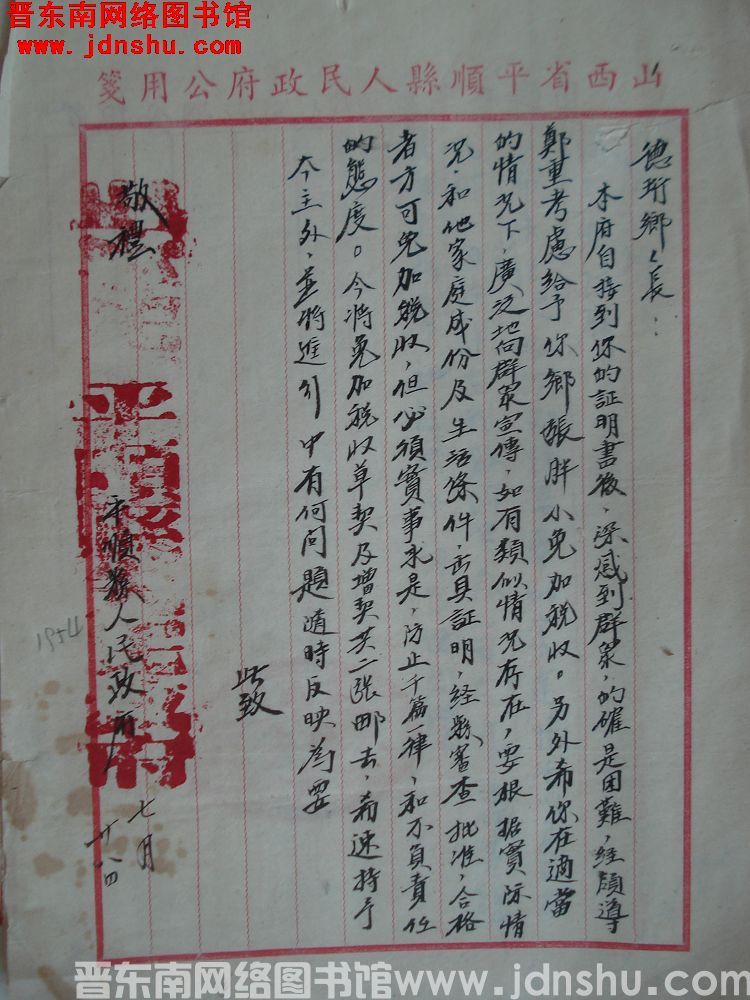 晋东南网络图书馆
www.jdnshu.com
山西省平順縣人民政府公用箋
德珩鄉乀長：
本府自接到你的証明書後，深感到群眾，的確是困難，經領導
鄭重考慮給予你鄉張胖小免加税收。另外希你在適當
的情况下，廣泛地向群眾宣傳，如有類似情况存在，要根据實际情
况，和他家庭成份及生活條件，出具証明，經縣審查批准，合格
者方可免加税收，但必須實事求是，防止千篇一律，和不負責任
的態度。今將免加税收草契及增契共二張郵去，希速持予
本主外，並將進引中有何問題隨時反映為要
此致
敬禮
平順縣人民政府
七月
廿八日
1954
晋东南网络图书馆www.jdnshu.com